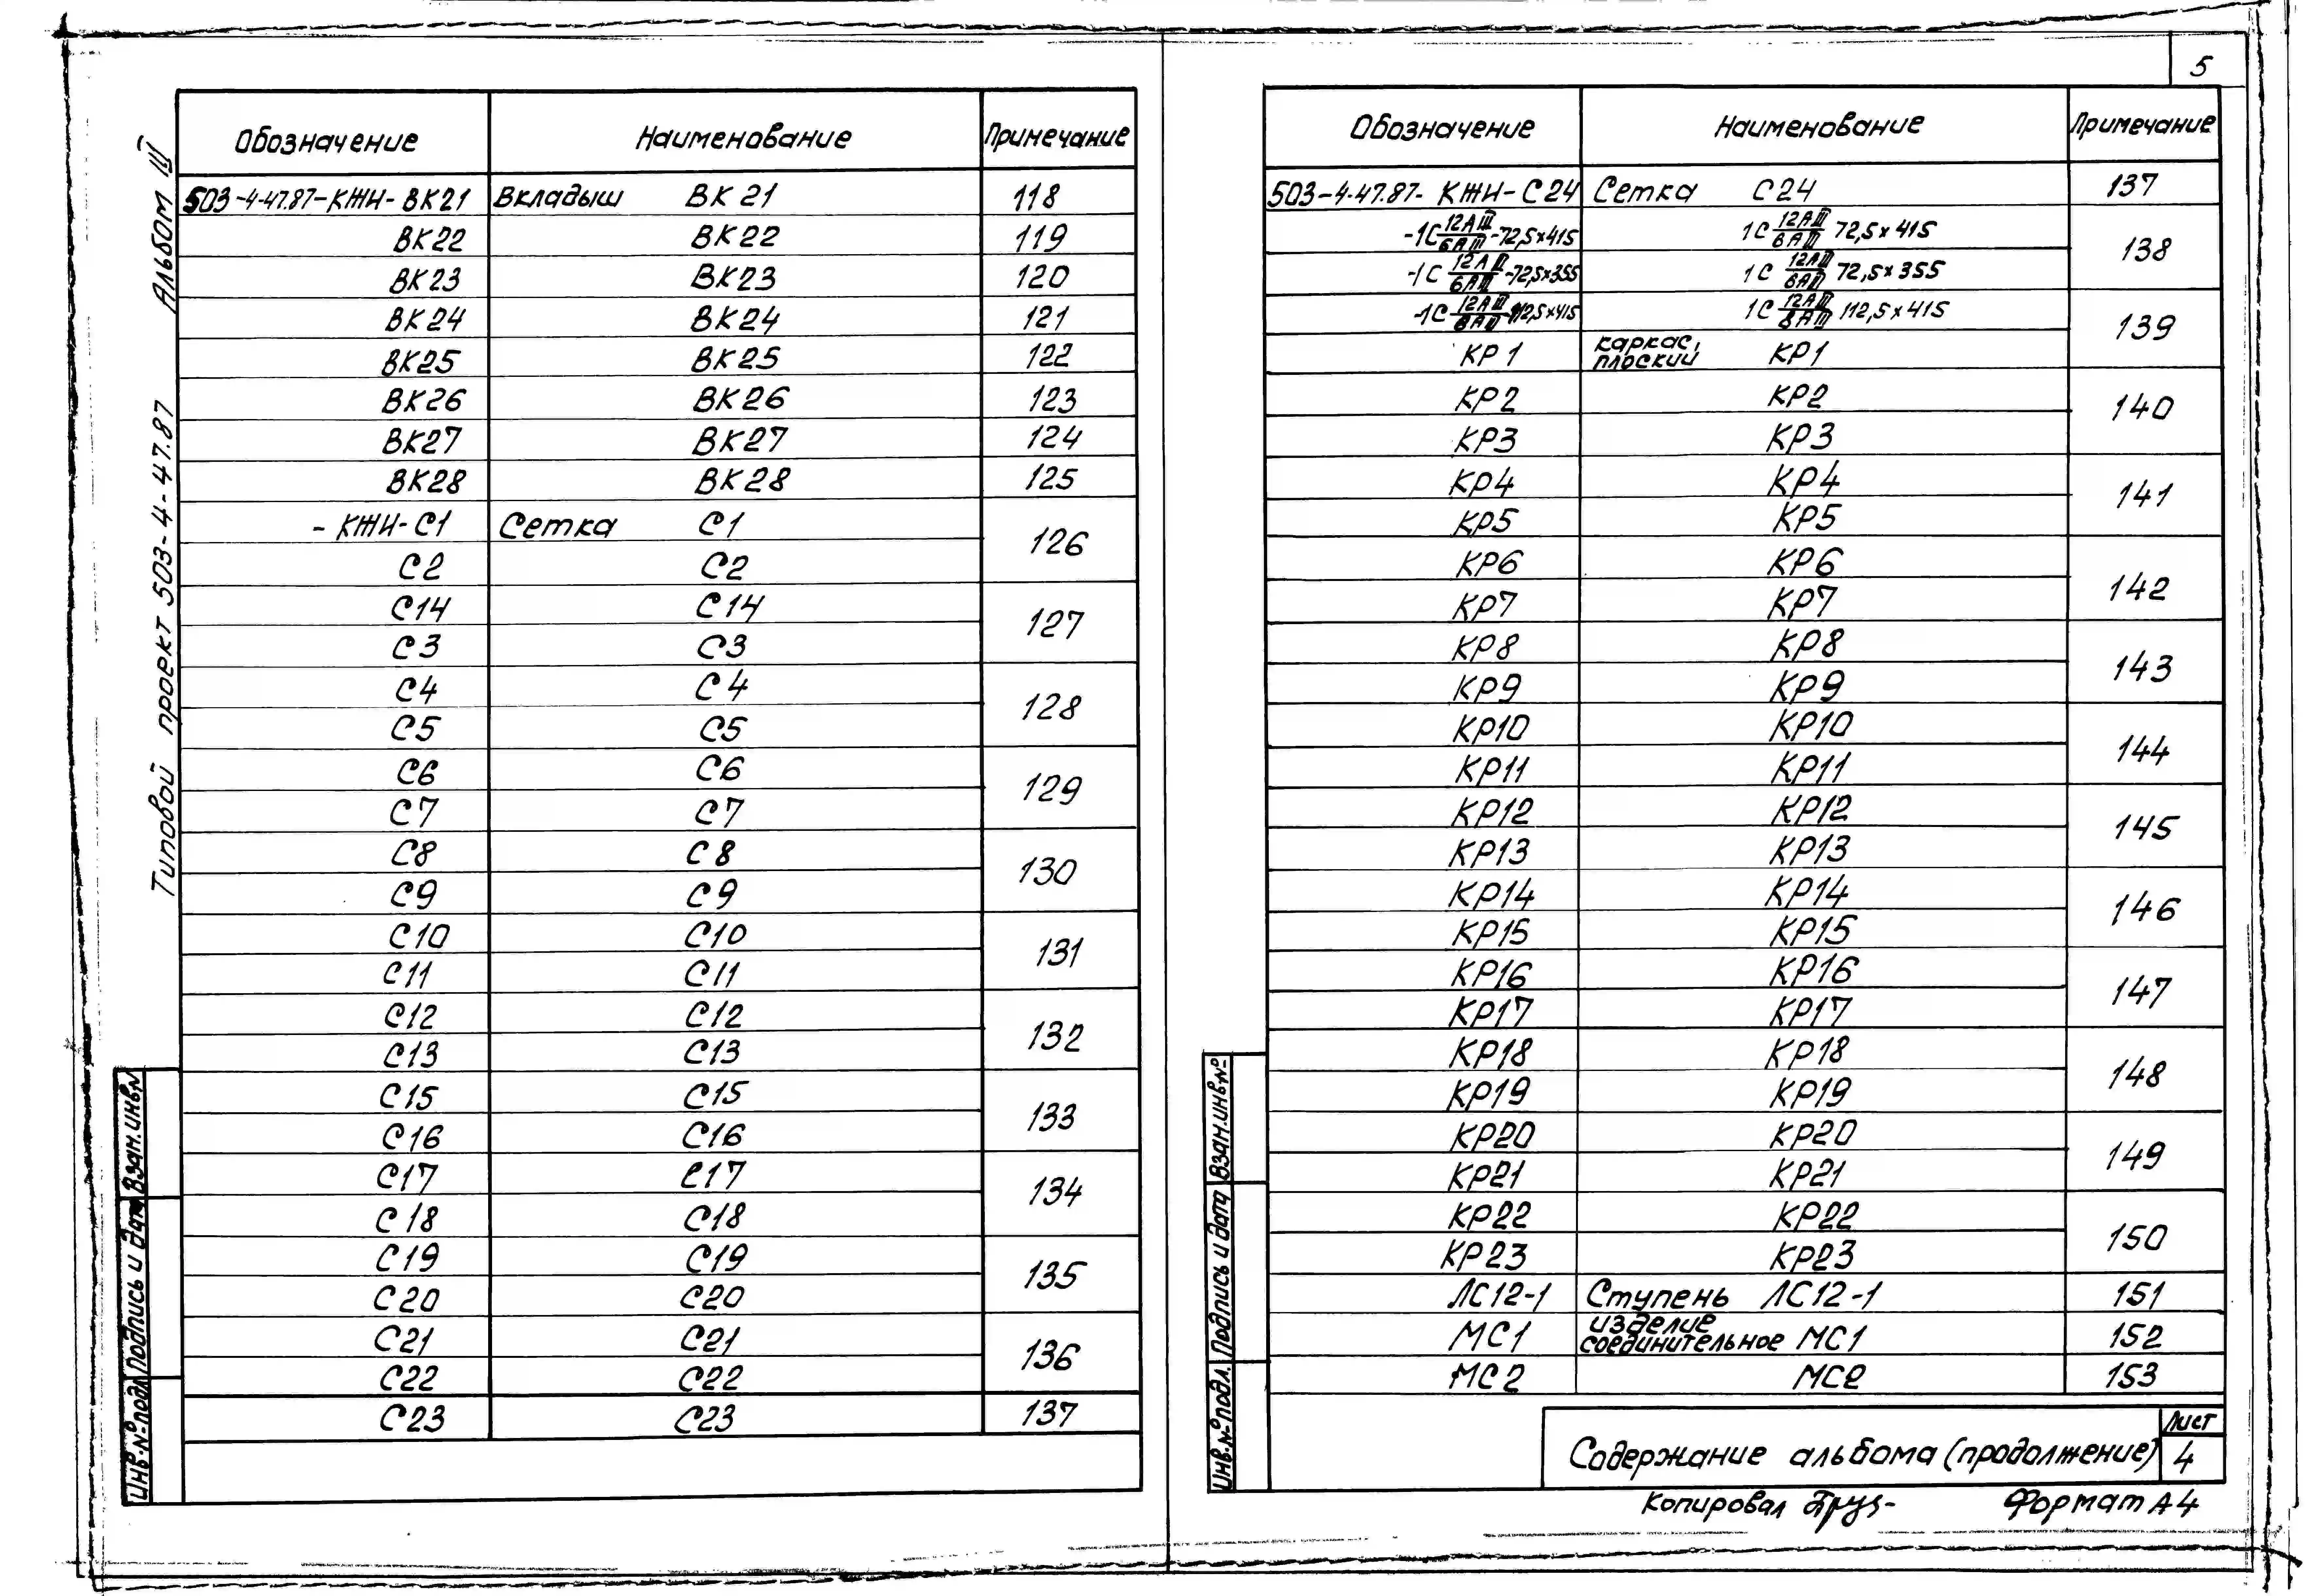 5
Типовой проект 503-4-47.87 Альбом III
Обозначение Наименование Примечание
503-4-47.87-КЖИ-ВК21 Вкладыш ВК21 118
ВК22 ВК22 119
ВК23 ВК23 120
ВК24 ВК24 121
ВК25 ВК25 122
ВК26 ВК26 123
ВК27 ВК27 124
ВК28 ВК28 125
-КЖИ-С1 Сетка С1 126
С2 С2
С14 С14 127
С3 С3
С4 С4 128
С5 С5
С6 С6 129
С7 С7
С8 С8 130
С9 С9
С10 С10 131
С11 С11
С12 С12 132
С13 С13
С15 С15 133
С16 С16
С17 С17 134
С18 С18
С19 С19 135
С20 С20
С21 С21 136
С22 С22
С23 С23 137
Взам.инв№
Подпись и дата
Инв.№подл
Обозначение Наименование Примечание
503-4-47.87-КЖИ-С24 Сетка С24 137
-1С 12АIII/6АIII-72,5×415 1С 12АIII/8АIII 72,5×415 138
-1С 12АIII/6АIII-72,5×355 1С 12АIII/8АIII 72,5×355
-1С 12АIII/8АIII 112,5×415 1С 12АIII/8АIII 112,5×415 139
КР1 каркас плоский КР1
КР2 КР2 140
КР3 КР3
КР4 КР4 141
КР5 КР5
КР6 КР6 142
КР7 КР7
КР8 КР8 143
КР9 КР9
КР10 КР10 144
КР11 КР11
КР12 КР12 145
КР13 КР13
КР14 КР14 146
КР15 КР15
КР16 КР16 147
КР17 КР17
КР18 КР18 148
КР19 КР19
КР20 КР20 149
КР21 КР21
КР22 КР22 150
КР23 КР23
ЛС12-1 Ступень ЛС12-1 151
МС1 изделие соединительное МС1 152
МС2 МС2 153
Взам.инв№
Подпись и дата
Инв.№подл.
Содержание альбома (продолжение)
Лист
4
Копировал
Формат А4